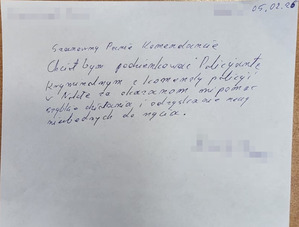 05.02.26
Szanowny Panie Komendancie
Chciałbym podziękować Policjantom
Kryminalnym z komendy policji
w za okazaną mi pomoc
szybkie działania i odzyskanie
niezbędnych do życia.